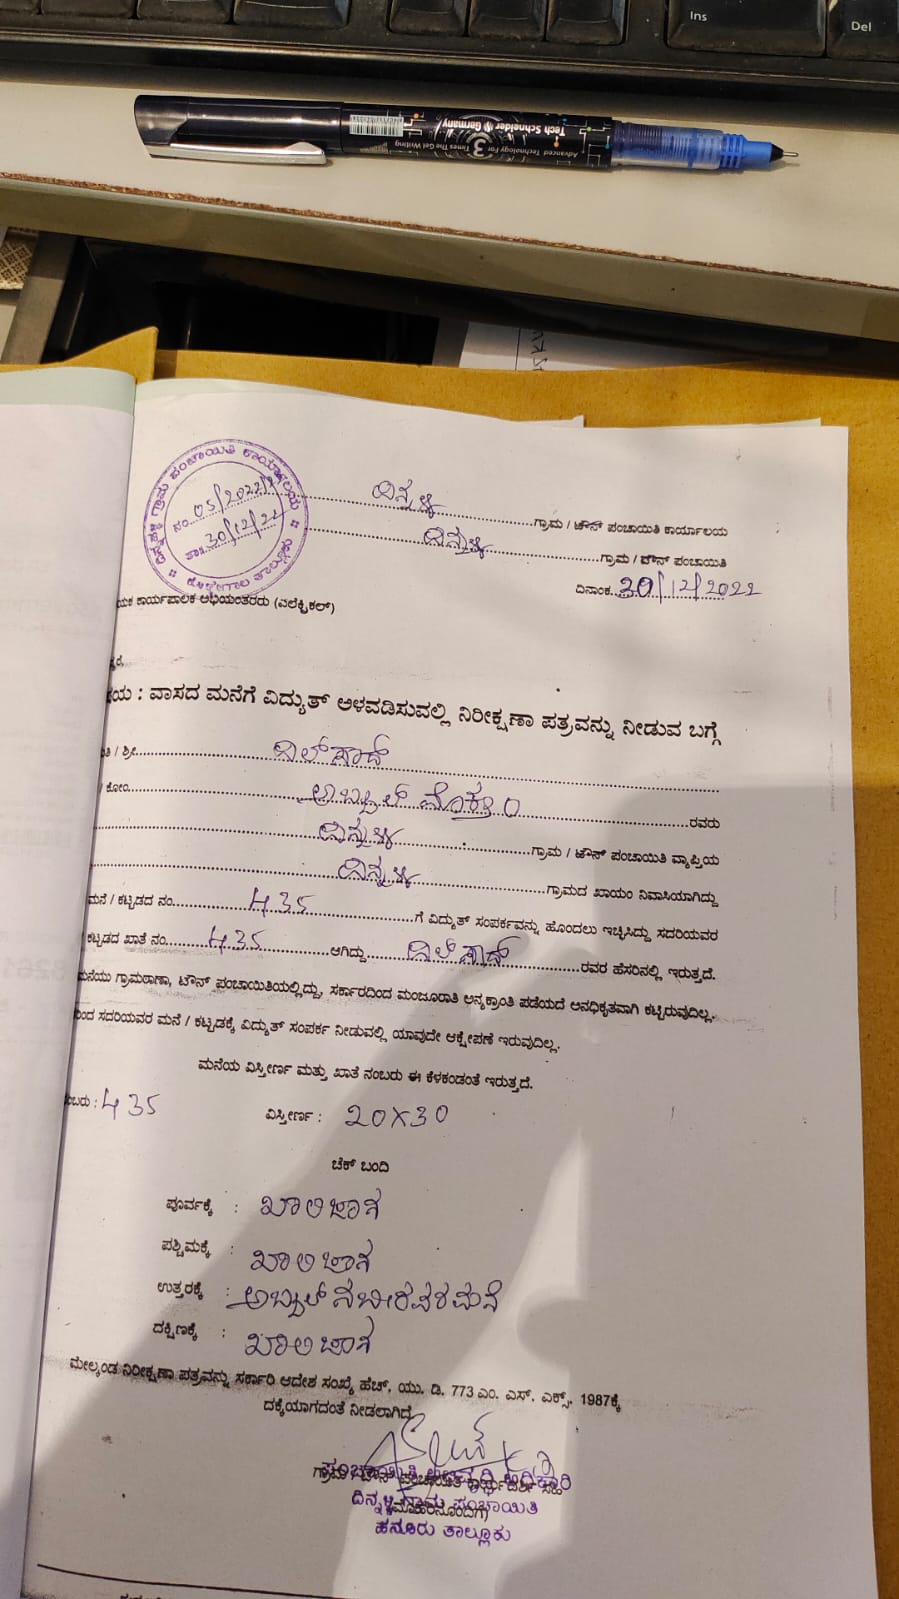 Ins
Del
Tech Schneider Germany
Advanced Technology For 3 Times The Gel Writing
ಗ್ರಾಮ ಪಂಚಾಯಿತಿ ಕಾರ್ಯಾಲಯ
ಕೊಳ್ಳೇಗಾಲ ತಾಲ್ಲೂಕು
ನಂ 05/2022/
ತಾ: 30/12/22
ದಿನ್ನಳ್ಳಿ ಗ್ರಾಮ / ಟೌನ್ ಪಂಚಾಯಿತಿ ಕಾರ್ಯಾಲಯ
ದಿನ್ನಳ್ಳಿ ಗ್ರಾಮ / ಟೌನ್ ಪಂಚಾಯಿತಿ
ದಿನಾಂಕ 30/12/2022
ಯಕ ಕಾರ್ಯಪಾಲಕ ಅಭಿಯಂತರರು (ಎಲೆಕ್ಟ್ರಿಕಲ್)
ಷಯ : ವಾಸದ ಮನೆಗೆ ವಿದ್ಯುತ್ ಅಳವಡಿಸುವಲ್ಲಿ ನಿರೀಕ್ಷಣಾ ಪತ್ರವನ್ನು ನೀಡುವ ಬಗ್ಗೆ
ತಿ / ಶ್ರೀ ದಿಲ್ ಷಾದ್
ಕೋಂ ಅಬ್ಬುಲ್ ಮೊಕ್ತಾಂ ರವರು
ದಿನ್ನಳ್ಳಿ ಗ್ರಾಮ / ಟೌನ್ ಪಂಚಾಯಿತಿ ವ್ಯಾಪ್ತಿಯ
ದಿನ್ನಳ್ಳಿ ಗ್ರಾಮದ ಖಾಯಂ ನಿವಾಸಿಯಾಗಿದ್ದು
ಮನೆ / ಕಟ್ಟಡದ ನಂ. 435 ಗೆ ವಿದ್ಯುತ್ ಸಂಪರ್ಕವನ್ನು ಹೊಂದಲು ಇಚ್ಛಿಸಿದ್ದು ಸದರಿಯವರ
ಕಟ್ಟಡದ ಖಾತೆ ನಂ. 435 ಆಗಿದ್ದು ದಿಲ್ ಷಾದ್ ರವರ ಹೆಸರಿನಲ್ಲಿ ಇರುತ್ತದೆ.
ಮನೆಯು ಗ್ರಾಮಠಾಣಾ, ಟೌನ್ ಪಂಚಾಯಿತಿಯಲ್ಲಿದ್ದು, ಸರ್ಕಾರದಿಂದ ಮಂಜೂರಾತಿ ಅನ್ಯಕ್ರಾಂತಿ ಪಡೆಯದೆ ಅನಧಿಕೃತವಾಗಿ ಕಟ್ಟಿರುವುದಿಲ್ಲ.
ಸದರಿಯವರ ಮನೆ / ಕಟ್ಟಡಕ್ಕೆ ವಿದ್ಯುತ್ ಸಂಪರ್ಕ ನೀಡುವಲ್ಲಿ ಯಾವುದೇ ಆಕ್ಷೇಪಣೆ ಇರುವುದಿಲ್ಲ.
ಮನೆಯ ವಿಸ್ತೀರ್ಣ ಮತ್ತು ಖಾತೆ ನಂಬರು ಈ ಕೆಳಕಂಡಂತೆ ಇರುತ್ತದೆ.
ಂಬರು : 435 ವಿಸ್ತೀರ್ಣ : 20X30
ಚೆಕ್ ಬಂದಿ
ಪೂರ್ವಕ್ಕೆ : ಖಾಲಿಜಾಗ
ಪಶ್ಚಿಮಕ್ಕೆ : ಖಾಲಿಜಾಗ
ಉತ್ತರಕ್ಕೆ : ಅಬ್ಬುಲ್ ನಬೀರವರ ಮನೆ
ದಕ್ಷಿಣಕ್ಕೆ : ಖಾಲಿಜಾಗ
ಮೇಲ್ಕಂಡ ನಿರೀಕ್ಷಣಾ ಪತ್ರವನ್ನು ಸರ್ಕಾರಿ ಆದೇಶ ಸಂಖ್ಯೆ ಹೆಚ್. ಯು. ಡಿ. 773 ಎಂ. ಎಸ್. ಎಕ್ಸ್. 1987ಕ್ಕೆ
ದಕ್ಕೆಯಾಗದಂತೆ ನೀಡಲಾಗಿದೆ
ಪಂಚಾಯಿತಿ ಅಭಿವೃದ್ಧಿ ಅಧಿಕಾರಿ
ದಿನ್ನಳ್ಳಿ ಗ್ರಾಮ ಪಂಚಾಯಿತಿ
ಹನೂರು ತಾಲ್ಲೂಕು